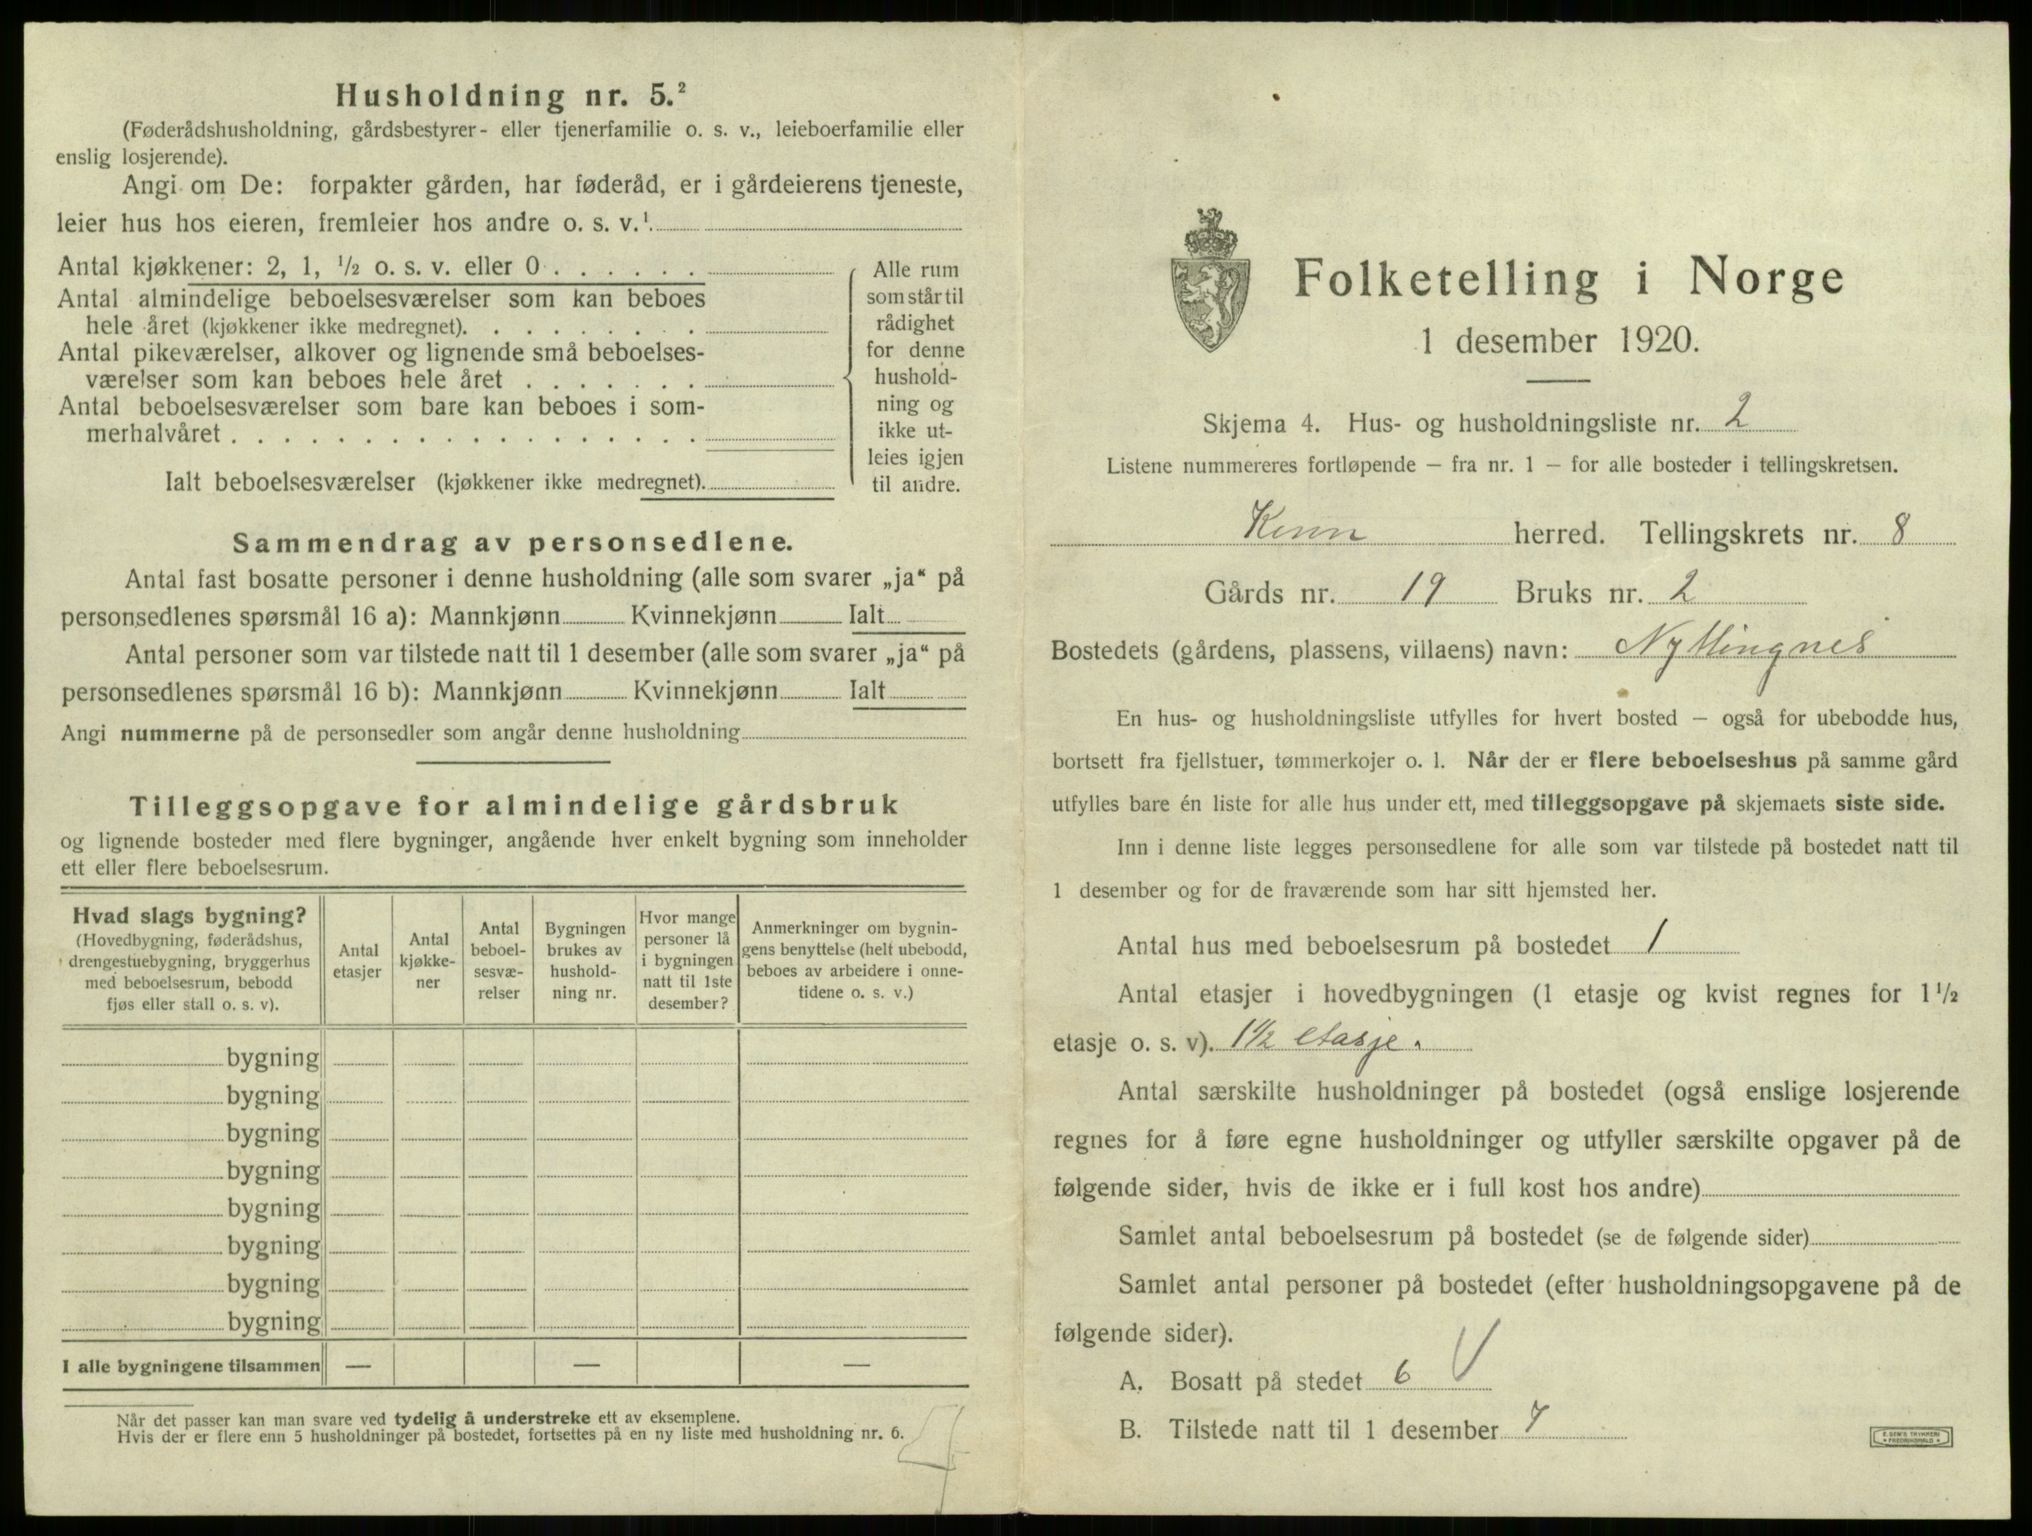 Husholdning nr. 5.²
(Føderådshusholdning, gårdsbestyrer- eller tjenerfamilie o. s. v., leieboerfamilie eller
enslig losjerende).
Angi om De: forpakter gården, har føderåd, er i gårdeierens tjeneste,
leier hus hos eieren, fremleier hos andre o. s. v.¹
Antal kjøkkener: 2, 1, ½ o. s. v. eller 0 . . . . . .
Antal almindelige beboelsesværelser som kan beboes
hele året (kjøkkener ikke medregnet). . . . . . . . .
Antal pikeværelser, alkover og lignende små beboelses-
værelser som kan beboes hele året . . . . . . .
Antal beboelsesværelser som bare kan beboes i som-
merhalvåret . . . . . . . . . . . . . . . . . .
Ialt beboelsesværelser (kjøkkener ikke medregnet).
Alle rum
som står til
rådighet
for denne
hushold-
ning og
ikke ut-
leies igjen
til andre.
Sammendrag av personsedlene.
Antal fast bosatte personer i denne husholdning (alle som svarer „ja“ på
personsedlenes spørsmål 16 a): Mannkjønn Kvinnekjønn Ialt
Antal personer som var tilstede natt til 1 desember (alle som svarer „ja“ på
personsedlenes spørsmål 16 b): Mannkjønn Kvinnekjønn Ialt
Angi nummerne på de personsedler som angår denne husholdning
Tilleggsopgave for almindelige gårdsbruk
og lignende bosteder med flere bygninger, angående hver enkelt bygning som inneholder
ett eller flere beboelsesrum.
Hvad slags bygning?
(Hovedbygning, føderådshus,
drengestuebygning, bryggerhus
med beboelsesrum, bebodd
fjøs eller stall o. s. v).
Antal
etasjer
Antal
kjøkke-
ner
Antal
beboel-
sesvæ-
relser
Bygningen
brukes av
hushold-
ning nr.
Hvor mange
personer lå
i bygningen
natt til 1ste
desember?
Anmerkninger om bygnin-
gens benyttelse (helt ubebodd,
beboes av arbeidere i onne-
tidene o. s. v.)
bygning
bygning
bygning
bygning
bygning
bygning
bygning
bygning
I alle bygningene tilsammen — — —
Når det passer kan man svare ved tydelig å understreke ett av eksemplene.
Hvis der er flere enn 5 husholdninger på bostedet, fortsettes på en ny liste med husholdning nr. 6.
Folketelling i Norge
1 desember 1920.
Skjema 4. Hus- og husholdningsliste nr. 2
Listene nummereres fortløpende — fra nr. 1 — for alle bosteder i tellingskretsen.
Kinn herred. Tellingskrets nr. 8
Gårds nr. 19 Bruks nr. 2
Bostedets (gårdens, plassens, villaens) navn: Nyttingnes
En hus- og husholdningsliste utfylles for hvert bosted — også for ubebodde hus,
bortsett fra fjellstuer, tømmerkojer o. l. Når der er flere beboelseshus på samme gård
utfylles bare én liste for alle hus under ett, med tilleggsopgave på skjemaets siste side.
Inn i denne liste legges personsedlene for alle som var tilstede på bostedet natt til
1 desember og for de fraværende som har sitt hjemsted her.
Antal hus med beboelsesrum på bostedet 1
Antal etasjer i hovedbygningen (1 etasje og kvist regnes for 1½
etasje o. s. v). 1½ etasje.
Antal særskilte husholdninger på bostedet (også enslige losjerende
regnes for å føre egne husholdninger og utfyller særskilte opgaver på de
følgende sider, hvis de ikke er i full kost hos andre)
Samlet antal beboelsesrum på bostedet (se de følgende sider)
Samlet antal personer på bostedet (efter husholdningsopgavene på de
følgende sider).
A. Bosatt på stedet 6
B. Tilstede natt til 1 desember 7